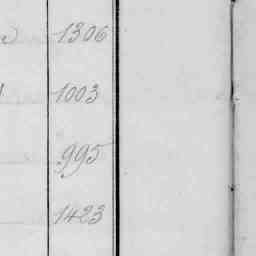 1306
1003
995
1423